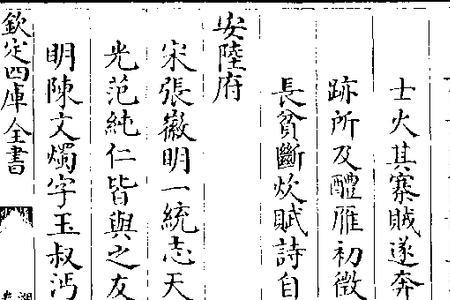 士火其寨賊遂奔
跡所及醴雁初微
長貧斷炊賦詩自
安陸府
宋張徽明一統志天
光范純仁皆與之友
明陳文燭字玉叔沔
欽定四庫全書